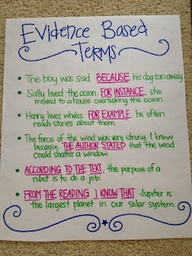 Evidence Based
Terms
• The boy was sad BECAUSE his dog ran away.
• Sally loved the ocean. FOR INSTANCE, she
moved to a house overlooking the ocean.
• Henry loves whales. FOR EXAMPLE, he often
reads stories about them.
• The force of the wind was very strong. I know
because, THE AUTHOR STATED that the wind
could shatter a window.
• ACCORDING TO THE TEXT, the purpose of a
robot is to do a job.
• FROM THE READING, I KNOW THAT Jupiter is
the largest planet in our solar system.